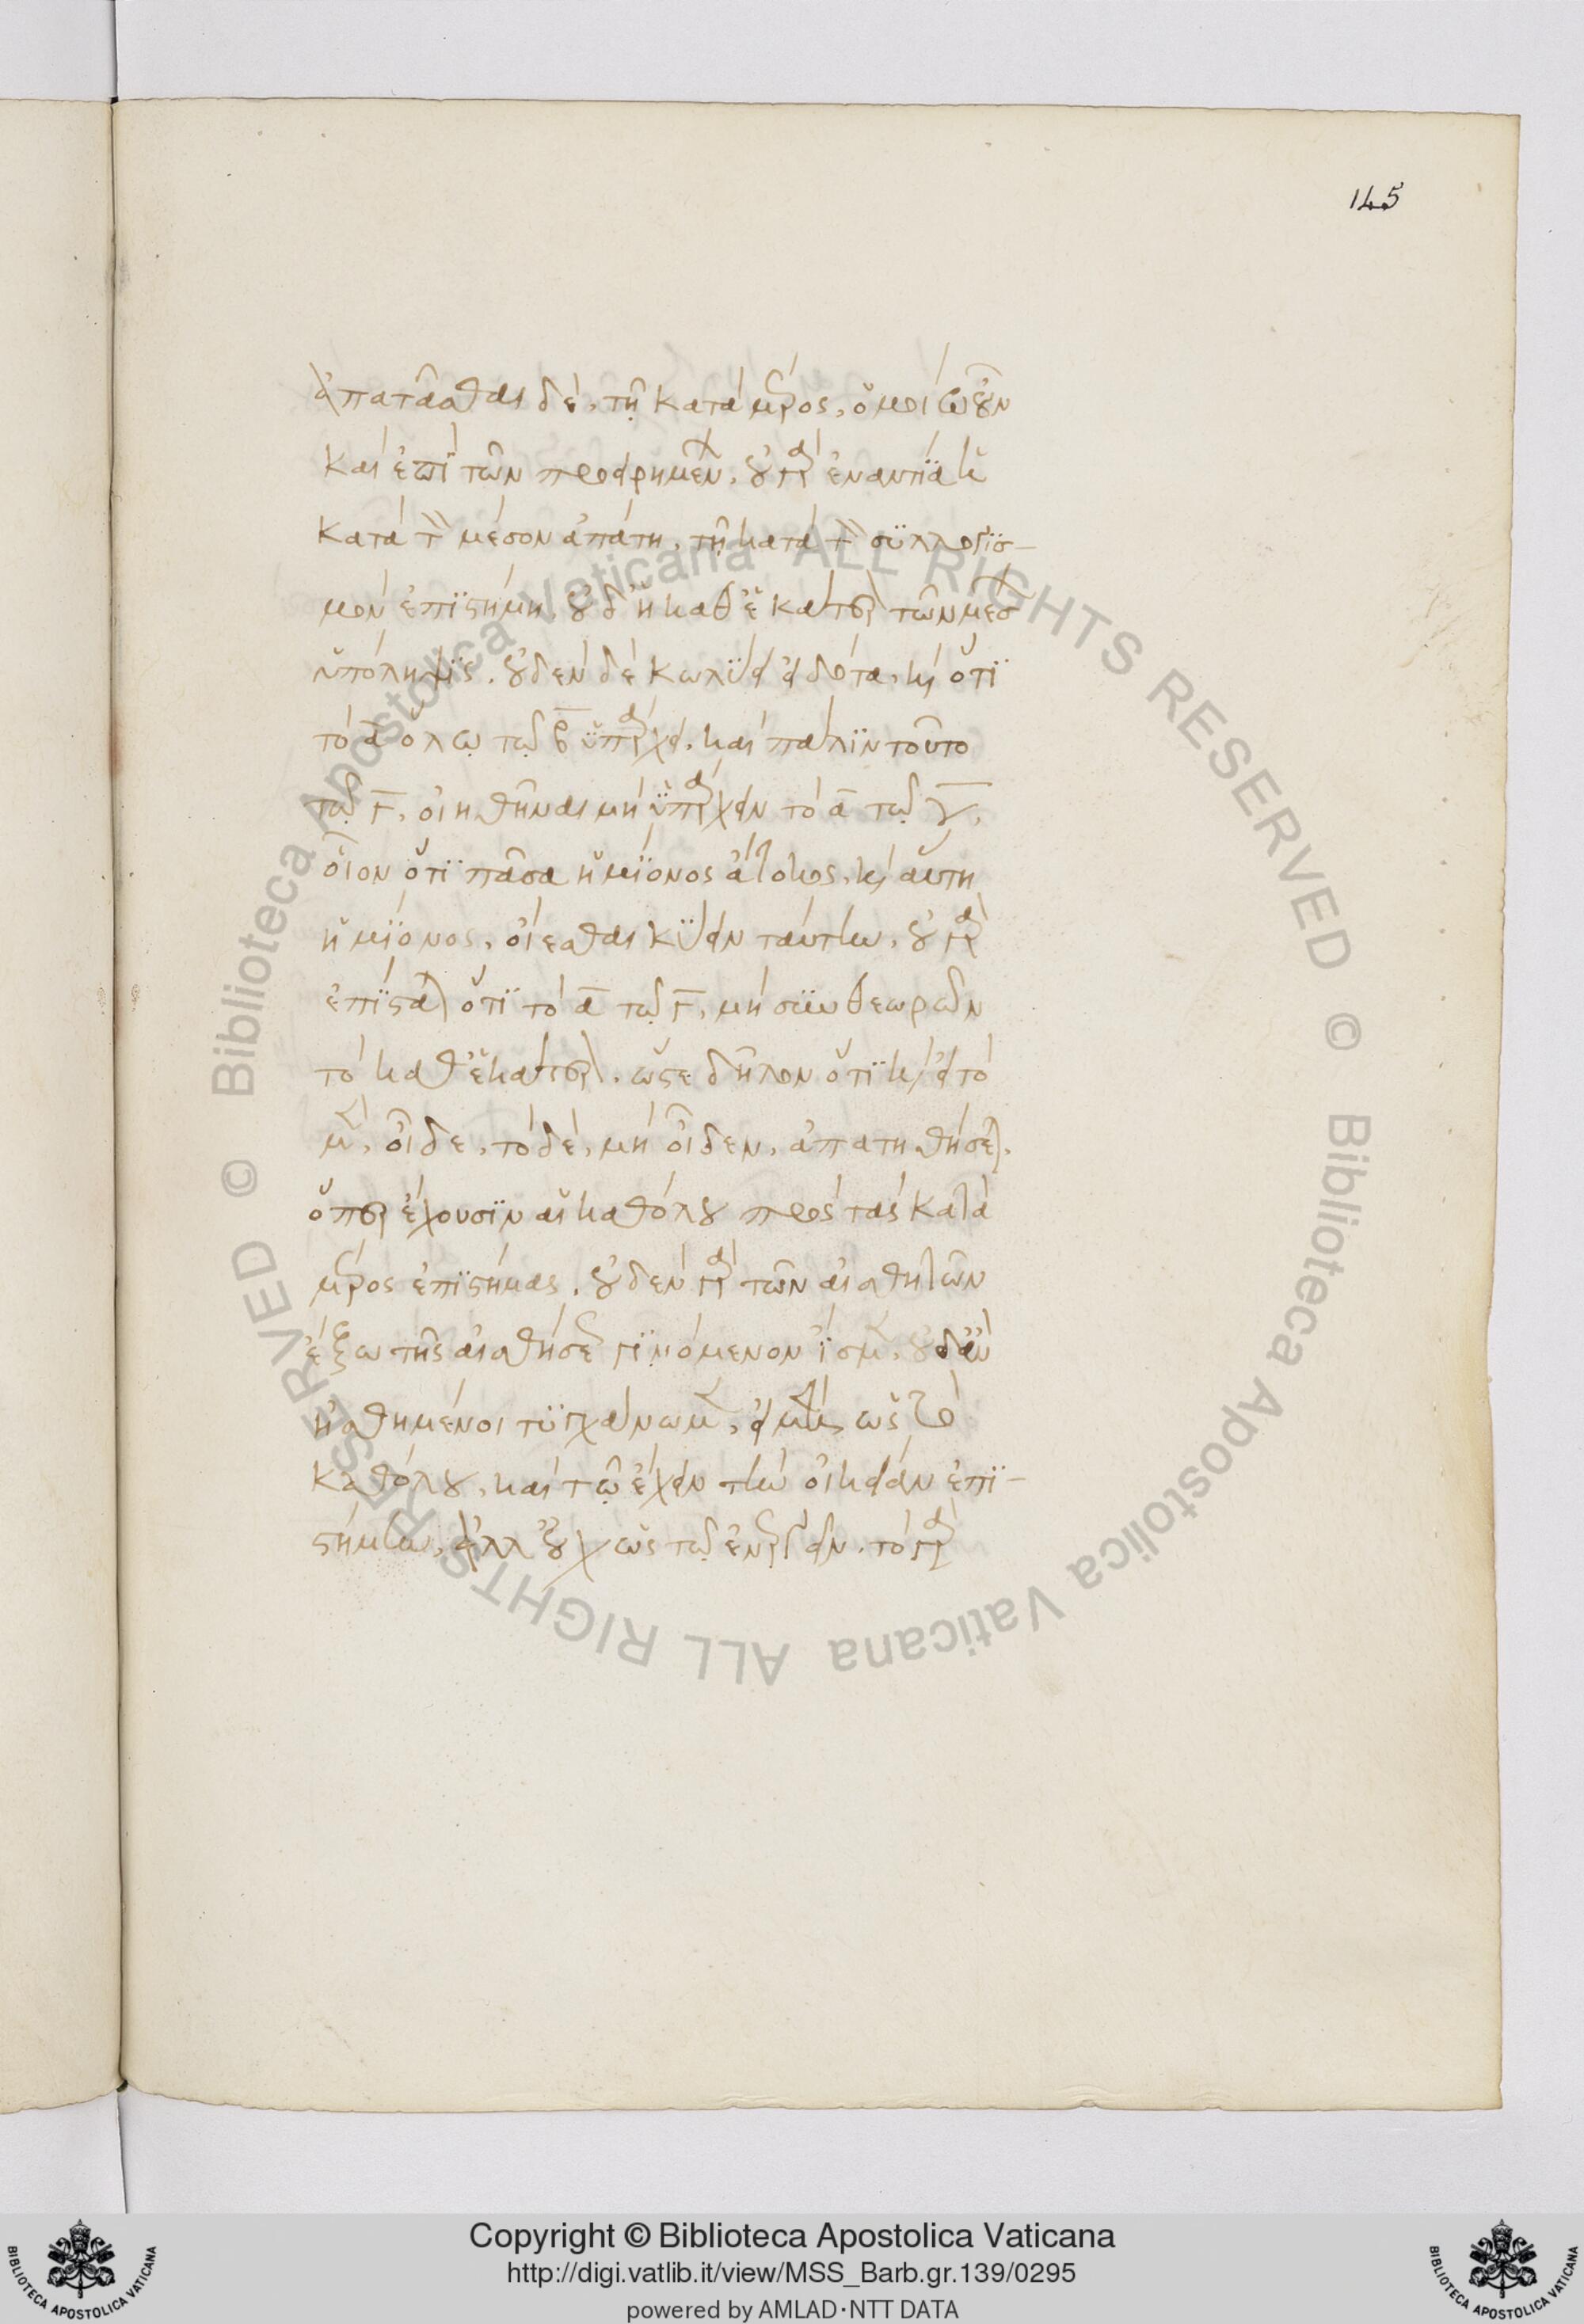 145
ἀπατᾶσθαι δὲ, τῆ κατὰ μέρος, ὁμοίως οὖν
καὶ ἐπὶ τῶν προειρημένων. οὐ γὰρ ἐναντία ἡ
κατὰ τὸ μέσον ἀπάτη, τῆ κατὰ τὸν συλλογισ-
μὸν ἐπιστήμη, οὐδ' ἡ καθ' ἑκάτερον τῶν μέσων
ὑπόληψις. οὐδὲν δὲ κωλύει εἰδότα, καὶ ὅτι
τὸ α ὅλω τῶ β ὑπάρχει, καὶ πάλιν τοῦτο
τῶ γ, οἰηθῆναι μὴ ὑπάρχειν τὸ α τῶ γ,
οἷον ὅτι πᾶσα ἡμίονος ἄτοκος, καὶ αὕτη
ἡμίονος, οἴεσθαι κύειν ταύτην, οὐ γὰρ
ἐπίσταται ὅτι τὸ α τῶ γ, μὴ συνθεωρῶν
τὸ καθ' ἑκάτερον. ὥστε δῆλον ὅτι καὶ εἰ τὸ
μὲν, οἶδε, τὸ δὲ, μὴ οἶδεν, ἀπατηθήσεται.
ὅπερ ἔχουσιν αἱ καθόλου πρὸς τὰς κατὰ
μέρος ἐπιστήμας. οὐδὲν γὰρ τῶν αἰσθητῶν
ἔξω τῆς αἰσθήσεως γινόμενον ἴσμεν, οὐδ' ἂν
ἠσθημένοι τυγχάνωμεν, εἰ μὴ ὡς τὸ
καθόλου, καὶ τῶ ἔχειν τὴν οἰκείαν ἐπι-
στήμην, ἀλλ' οὐχ ὡς τῶ ἐνεργεῖν. τὸ γὰρ
Copyright © Biblioteca Apostolica Vaticana
http://digi.vatlib.it/view/MSS_Barb.gr.139/0295
powered by AMLAD·NTT DATA
BIBLIOTECA APOSTOLICA VATICANA
BIBLIOTECA APOSTOLICA VATICANA
© Biblioteca Apostolica Vaticana ALL RIGHTS RESERVED © Biblioteca Apostolica Vaticana ALL RIGHTS RESERVED